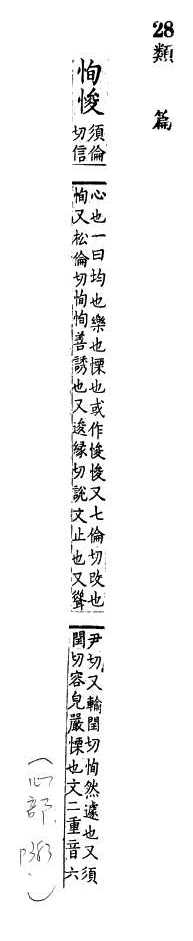 28類篇
恂悛
須倫
切信
心也一曰均也樂也慄也或作悛悛又七倫切改也
恂又松倫切恂恂善誘也又逡緣切說文止也又聳
尹切又輸閏切恂然遽也又須
閏切容皃嚴慄也文二重音六
(心部. p383.)